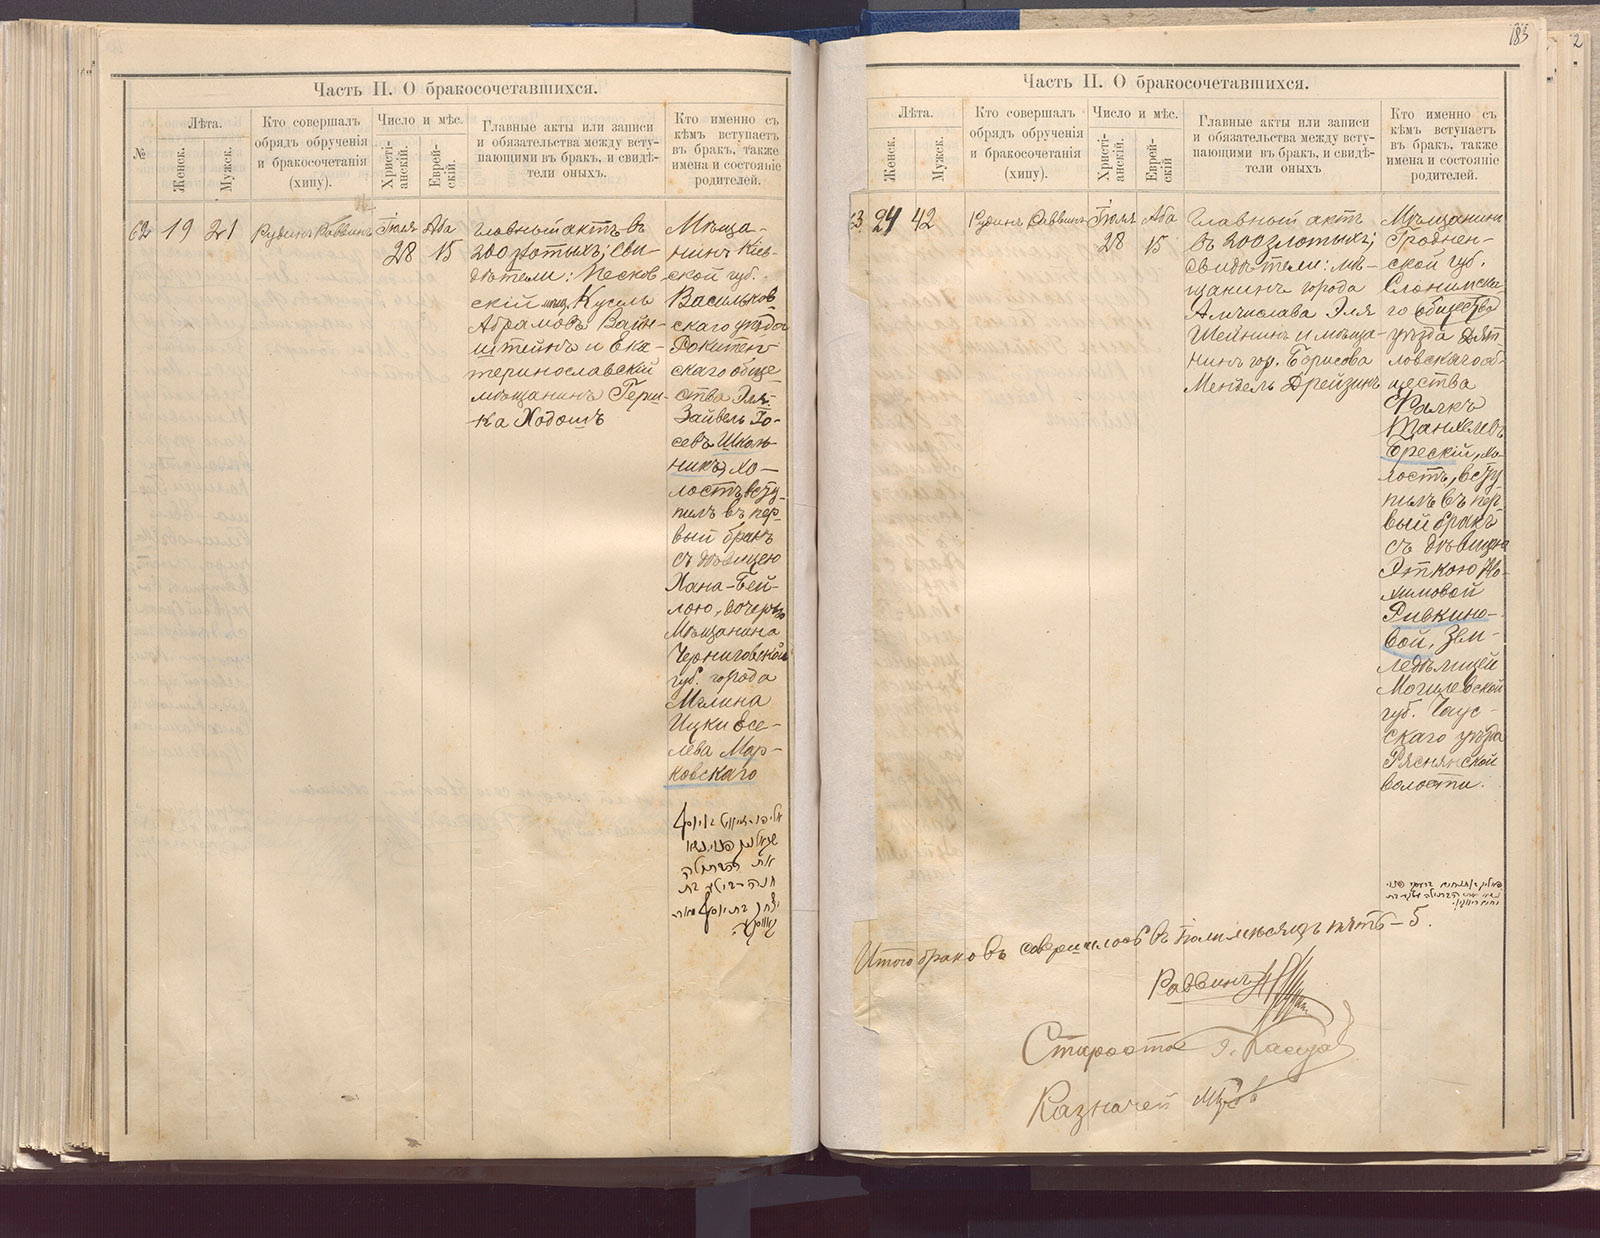 183
2
Часть II. О бракосочетавшихся.
№
Лѣта.
Женск.
Мужск.
Кто совершалъ
обрядъ обрученія
и бракосочетанія
(хипу).
Число и мѣс.
Христі-
анскій.
Еврей-
скій.
Главные акты или записи
и обязательства между всту-
пающими въ бракъ, и свидѣ-
тели оныхъ.
Кто именно съ
кѣмъ вступаетъ
въ бракъ, также
имена и состояніе
родителей.
62
19
21
Рудинъ Раввинъ
Іюля
28
Аба
15
Главный актъ въ
200 злотыхъ; сви-
дѣтели: Песков
скій мѣщ. Кусель
Абрамовъ Вайн-
штейнъ и Ека-
теринославскій
мѣщанинъ Герш-
ка Ходошъ
Мѣща-
нинъ Кіев-
ской губ.
Васильков
скаго уѣзда
Рокитен-
скаго обще-
ства Эля-
Зайвель Іо-
севъ Школь-
никъ, хо-
лостъ, всту-
пилъ въ пер-
вый бракъ
съ дѣвицею
Хана-Бей-
лою, дочерью
Мѣщанина
Черниговской
губ. города
Мглина
Ицки Есе-
лева Мар-
ковскаго
Часть II. О бракосочетавшихся.
Лѣта.
Женск.
Мужск.
Кто совершалъ
обрядъ обрученія
и бракосочетанія
(хипу).
Число и мѣс.
Христі-
анскій.
Еврей-
скій
Главные акты или записи
и обязательства между всту-
пающими въ бракъ, и свидѣ-
тели оныхъ
Кто именно съ
кѣмъ вступаетъ
въ бракъ, также
имена и состояніе
родителей.
63
24
42
Рудинъ Раввинъ
Іюля
28
Аба
15
Главный актъ
въ 200 злотыхъ;
свидѣтели: мѣ-
щанинъ города
Амчислава Эля
Шейнинъ и мѣща-
нинъ гор. Борисова
Мендель Дрейзинъ
Мѣщанинъ
Гроднен-
ской губ.
Слонимска-
го
уѣзда Дят
ловскаго об-
щества
Фалкъ
Танхелевъ
Брескій, хо-
лостъ, всту
пилъ въ пер-
вый бракъ
съ дѣвицею
Эткою Но-
химовой
Ривкино-
вой, Зем-
ледѣлицей
Могилевской
губ. Чаус-
скаго уѣзда
Ряснянской
волости.
Итого браковъ совершилось въ Іюли мѣсяцѣ пять - 5.
Раввинъ
Староста
Казначей